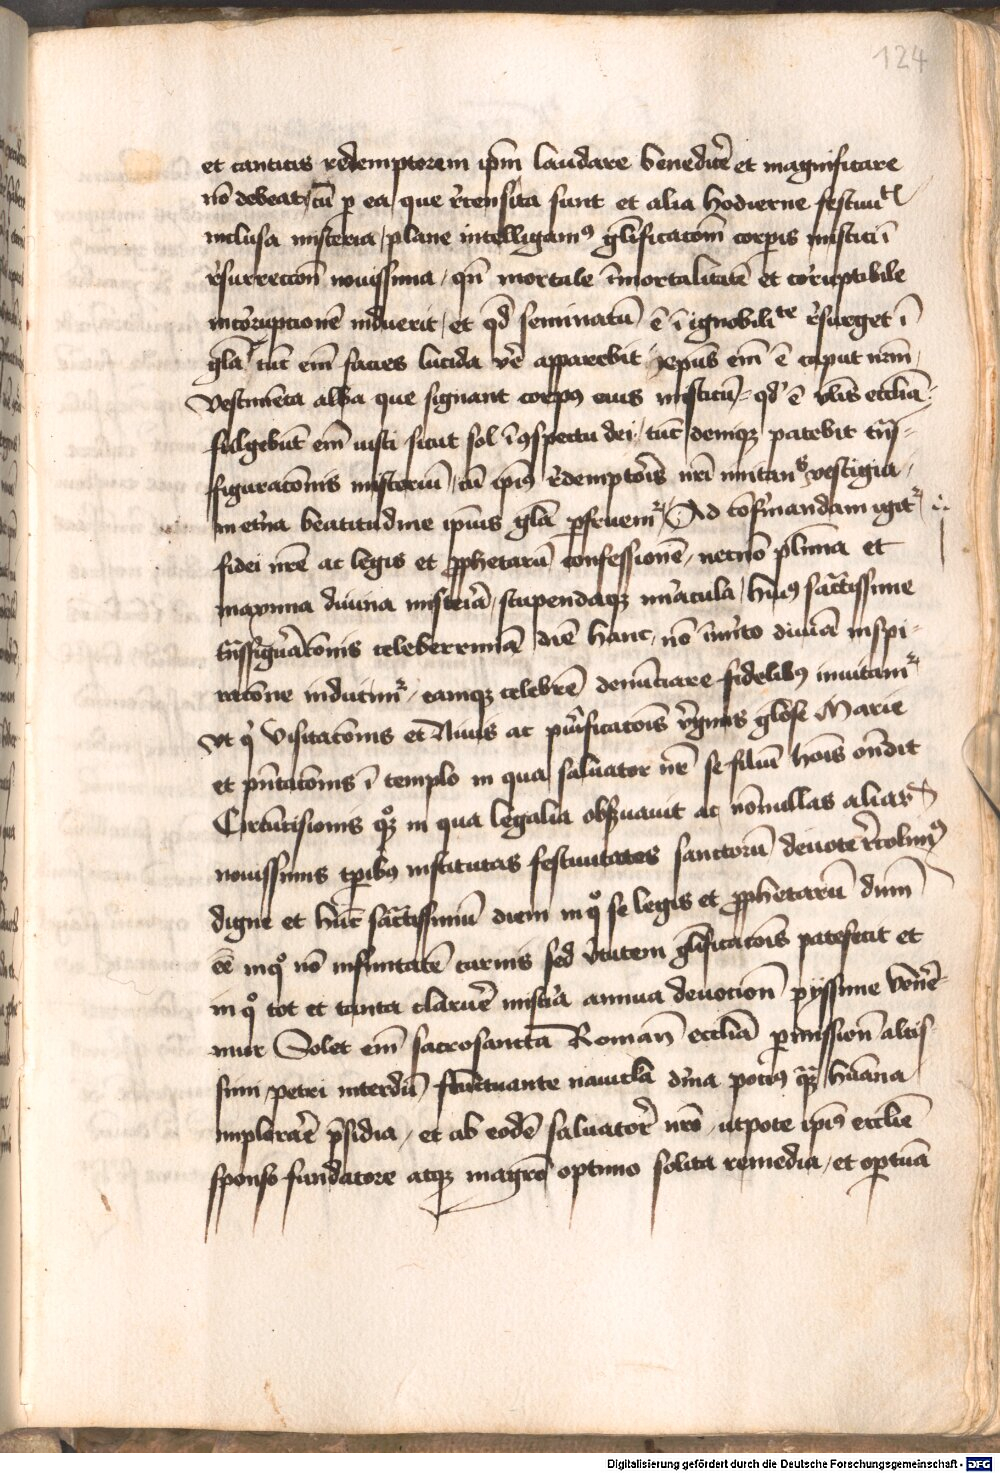 124
et canticis redemptorem ip̄m laudare benedicē et magnificare
nō debeat / cū p ea / que r̄censita sunt et alia hodierne festiuitꝭ
inclusa misteria / plane intelligamꝰ gl̄ificacōm corpis mistici ī
r̄surreccōn nouissima / qn̄ mortale īmortalitatē et coruptibile
incoruptionē induerit / et qd̄ seminatū ē ī ignobilite r̄surget ī
gl̄a tūc em̄ facies lucida vē apparebit / xp̄us em̄ ē caput nr̄m /
vestimēta alba que signant corpꝰ eius misticū = qd̄ ē vl̄is ecclīa /
fulgebūt em̄ iusti sicut sol ī ꝯspectu dei / tūc demqꝫ patebit trāſ=
figuracōnis misteriū / cū ipiꝰ r̄demptor̄is nr̄i imitan vestigia /
in et̄na beatitudine ipius gl̄a ꝑfruemꝛ / Ad cōf̄mandam igit̄
fidei nr̄e ac legis et ꝓphetarū confessionē / necnō pl̄ima et
maxima diuina mister̄ia / stupendaqꝫ mīracula / huiꝰ sāctissime
trāssiguracōnis celeberrimā diē hanc / nō īm̄ito diuīa inspi-
racōne inducimꝛ / eamqꝫ celebrē denūciare fidelibꝰ inuitamꝛ
vt qͥ visitacōnis et Niuis ac pur̄ificacōis v̄ginis glōse Marie
et pn̄tacōnis ī templo in qua saluator nr̄ se filiū hōis on̄dit
Circūcisionis qꝫ in qua legalia obſ̄uauit ac nōnullas aliarꝝ
nouissimis tpibꝰ institutas festiuitates sanctorū deuote r̄colimꝰ
digne et hūc sāctissimū diem in qͦ se legis et ꝓphetarū dn̄m
eē in qͦ nō infirmitatē carnis sed v̄tutem gl̄ificacōis patefecit et
in qͦ tot et tanta claruēr mist̄ia annua deuocion̄ pijssime venēr-
mur Solet em̄ sacrosancta Roman̄ ecclīa pmission̄ altis
simi / petri interdū fluctuante nauicl̄a diīna pociꝰ qꝫ hūana
implorar̄e p̄sidia / et ab eodē saluator̄e nr̄o / utpote ipiꝰ ecclīe
sponso fundatore atqꝫ magrō optimo solita remedia / et optūa
Digitalisierung gefördert durch die Deutsche Forschungsgemeinschaft - DFG